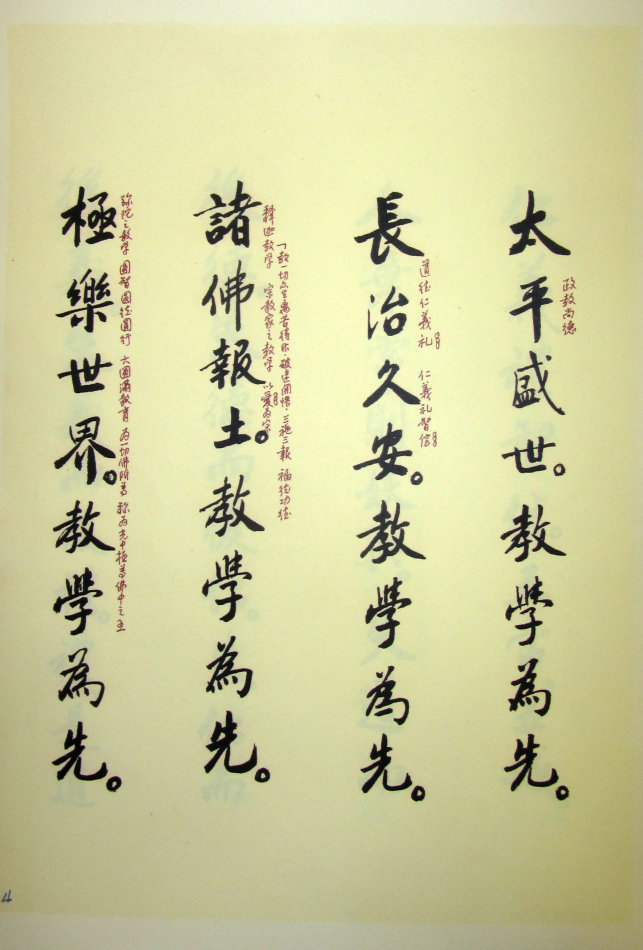 太平盛世。教學為先。
政教尚德
長治久安。教學為先。
道德仁義礼 仁義礼智信
諸佛報土。教學為先。
「教一切众生離苦得乐，破迷開悟，三福三報 福德功德
釋迦教学 宗教家之教学 以愛為宗
極樂世界。教學為先。
弥陀之教学 圓智圓德圓行 大圓滿教育 為一切佛所尊 称為光中極尊佛中之王
4